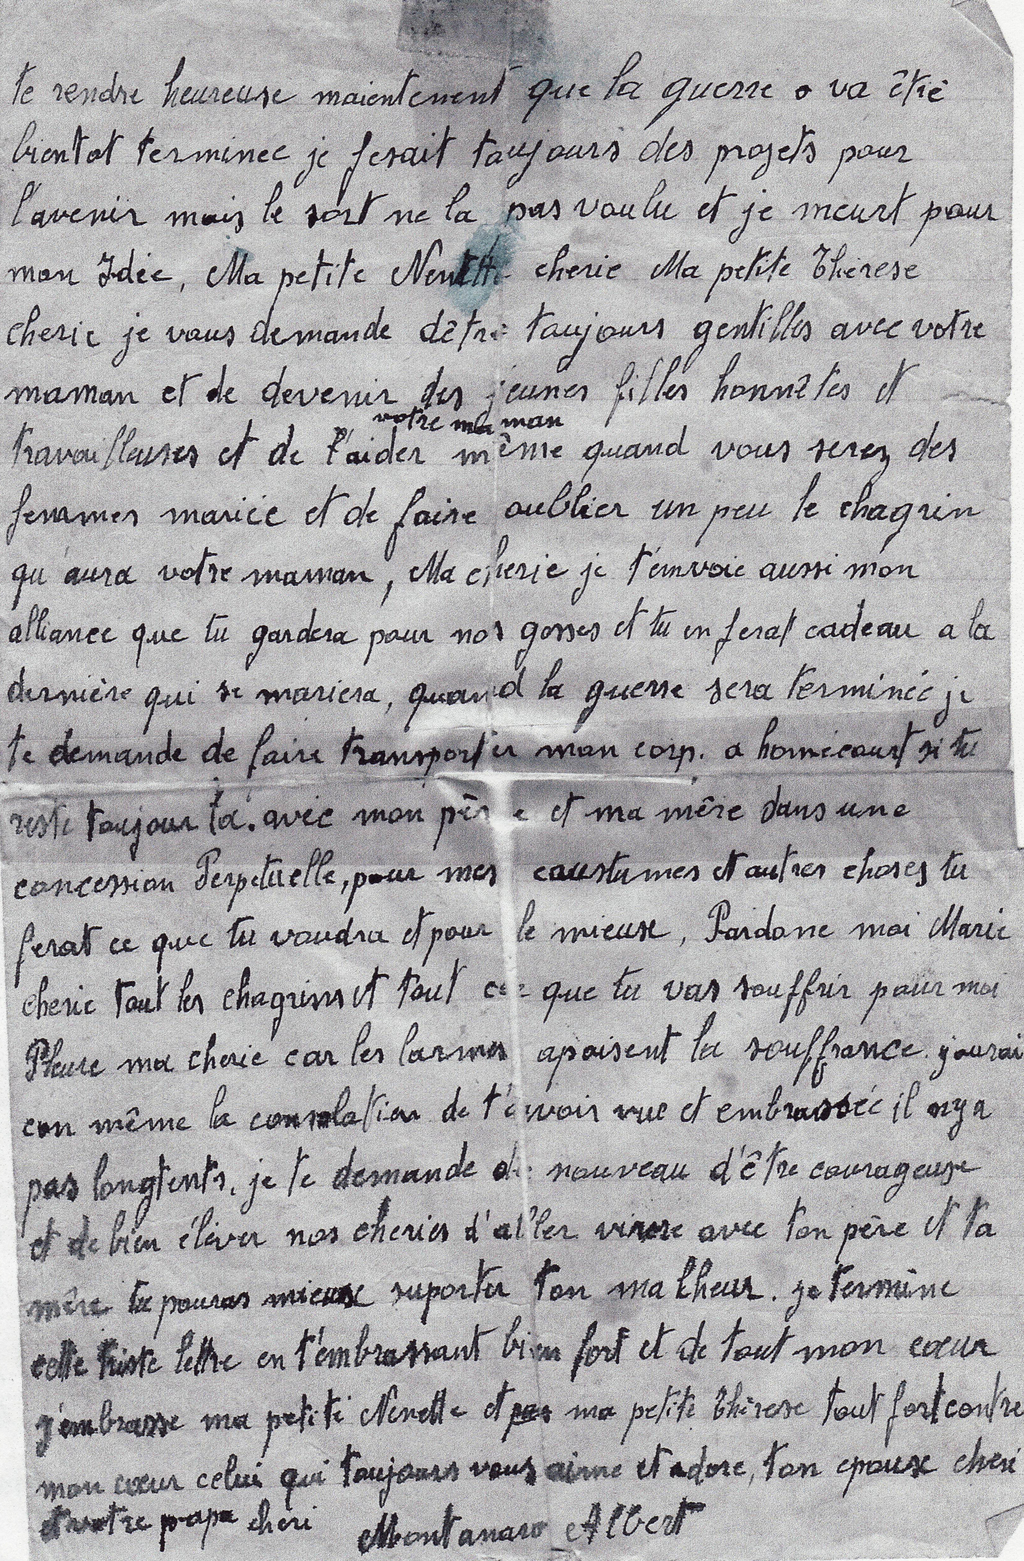 te rendre heureuse maientenent que la guerre va être
bientot terminee je ferait toujours des projets pour
l'avenir mais le sort ne la pas voulu et je meurt pour
mon Idée, Ma petite Nenette cherie Ma petite Thérese
cherie je vous demande d'être toujours gentilles avec votre
maman et de devenir des jeunes filles honnêtes et
votre maman
travailleuses et de l'aider même quand vous serez des
femmes mariée et de faire oublier un peu le chagrin
qu'aura votre maman, Ma cherie je t'envoie aussi mon
alliance que tu gardera pour nos gosses et tu en ferat cadeau a la
dernière qui se mariera, quand la guerre sera terminée je
te demande de faire transporter mon corp. a homécourt si tu
reste toujour là. avec mon père et ma mère dans une
concession Perpetuelle, pour mes coustumes et autres choses tu
ferat ce que tu voudra et pour le mieuse, Pardone moi Marie
cherie tout les chagrins et tout ce que tu vas souffrir pour moi
Pleure ma cherie car les larmes apaisent la souffrance. j'aurai
con même la consolation de t'avoir vue et embrassée il n'y a
pas longtents, je te demande de nouveau d'être courageuse
et de bien élever nos cheries d'aller vivre avec ton père et ta
mère tu pouras mieux suporter ton malheur. je termine
cette triste lettre en t'embrassant bien fort et de tout mon cœur
j'embrasse ma petite Nenette et ma petite Thérese tout fort contre
mon cœur celui qui toujours vous aime et adore, ton epouse cheri
et votre papa cheri Montanaro Albert